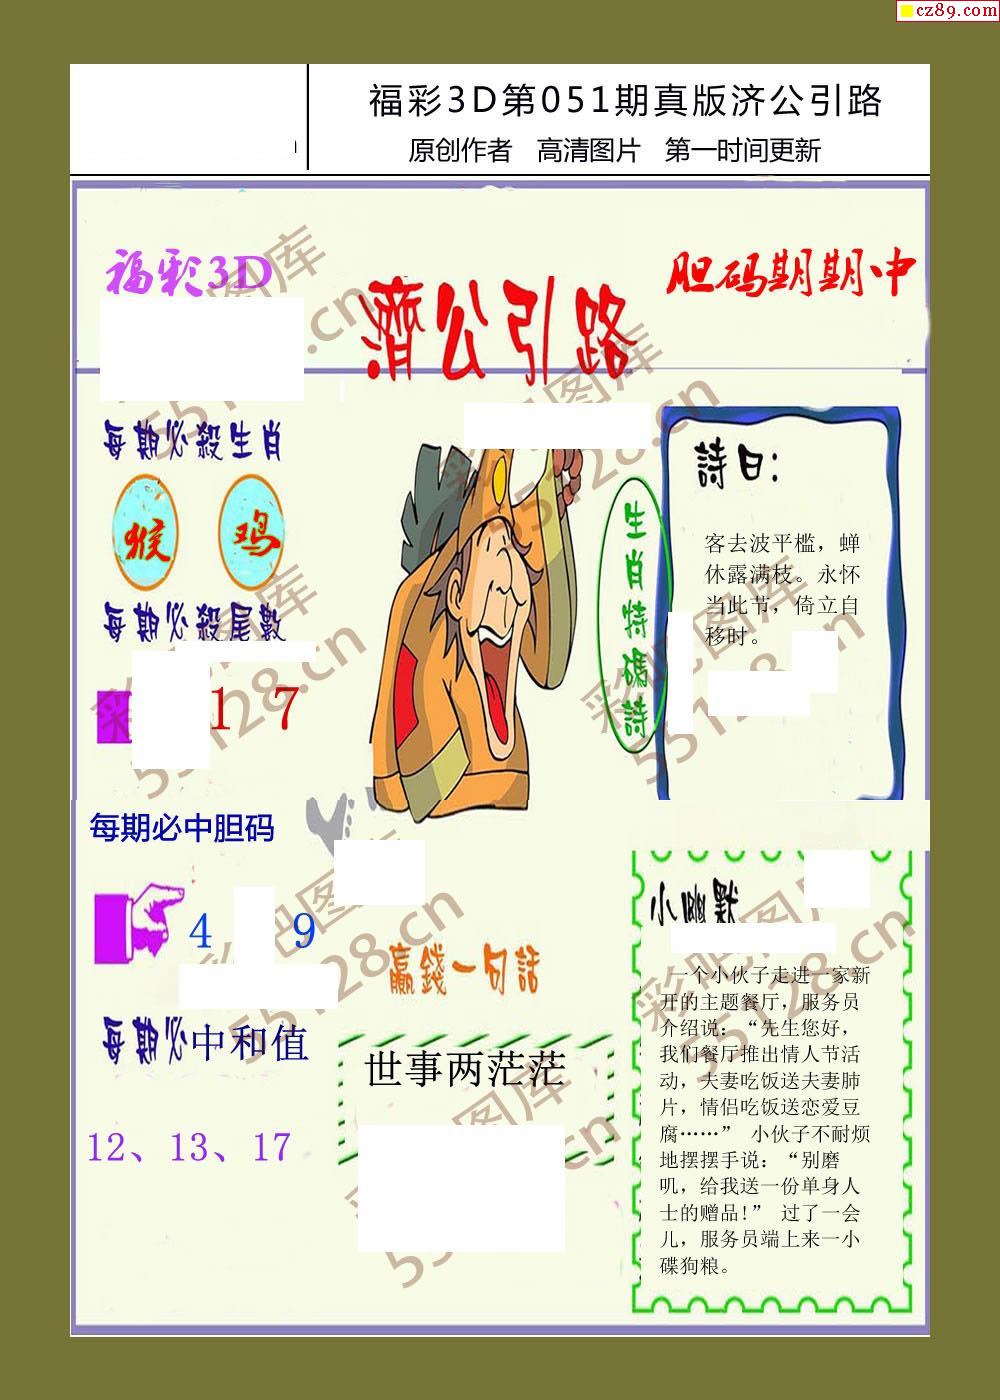 cz89.com
福彩3D第051期真版济公引路
原创作者 高清图片 第一时间更新
福彩3D
濟公引路
胆码期期中
每期必殺生肖
猴 鸡
每期必殺尾數
1 7
每期必中胆码
4 9
每期必中和值
12、13、17
生肖特碼詩
詩曰：
客去波平槛，蝉
休露满枝。永怀
当此节，倚立自
移时。
贏錢一句話
世事两茫茫
小幽默
一个小伙子走进一家新
开的主题餐厅，服务员
介绍说：“先生您好，
我们餐厅推出情人节活
动，夫妻吃饭送夫妻肺
片，情侣吃饭送恋爱豆
腐……” 小伙子不耐烦
地摆摆手说：“别磨
叽，给我送一份单身人
士的赠品!” 过了一会
儿，服务员端上来一小
碟狗粮。
彩吧图库
55128.cn
彩吧图库
55128.cn
彩吧图库
55128.cn
彩吧图库
55128.cn
彩吧图库
55128.cn
彩吧图库
55128.cn